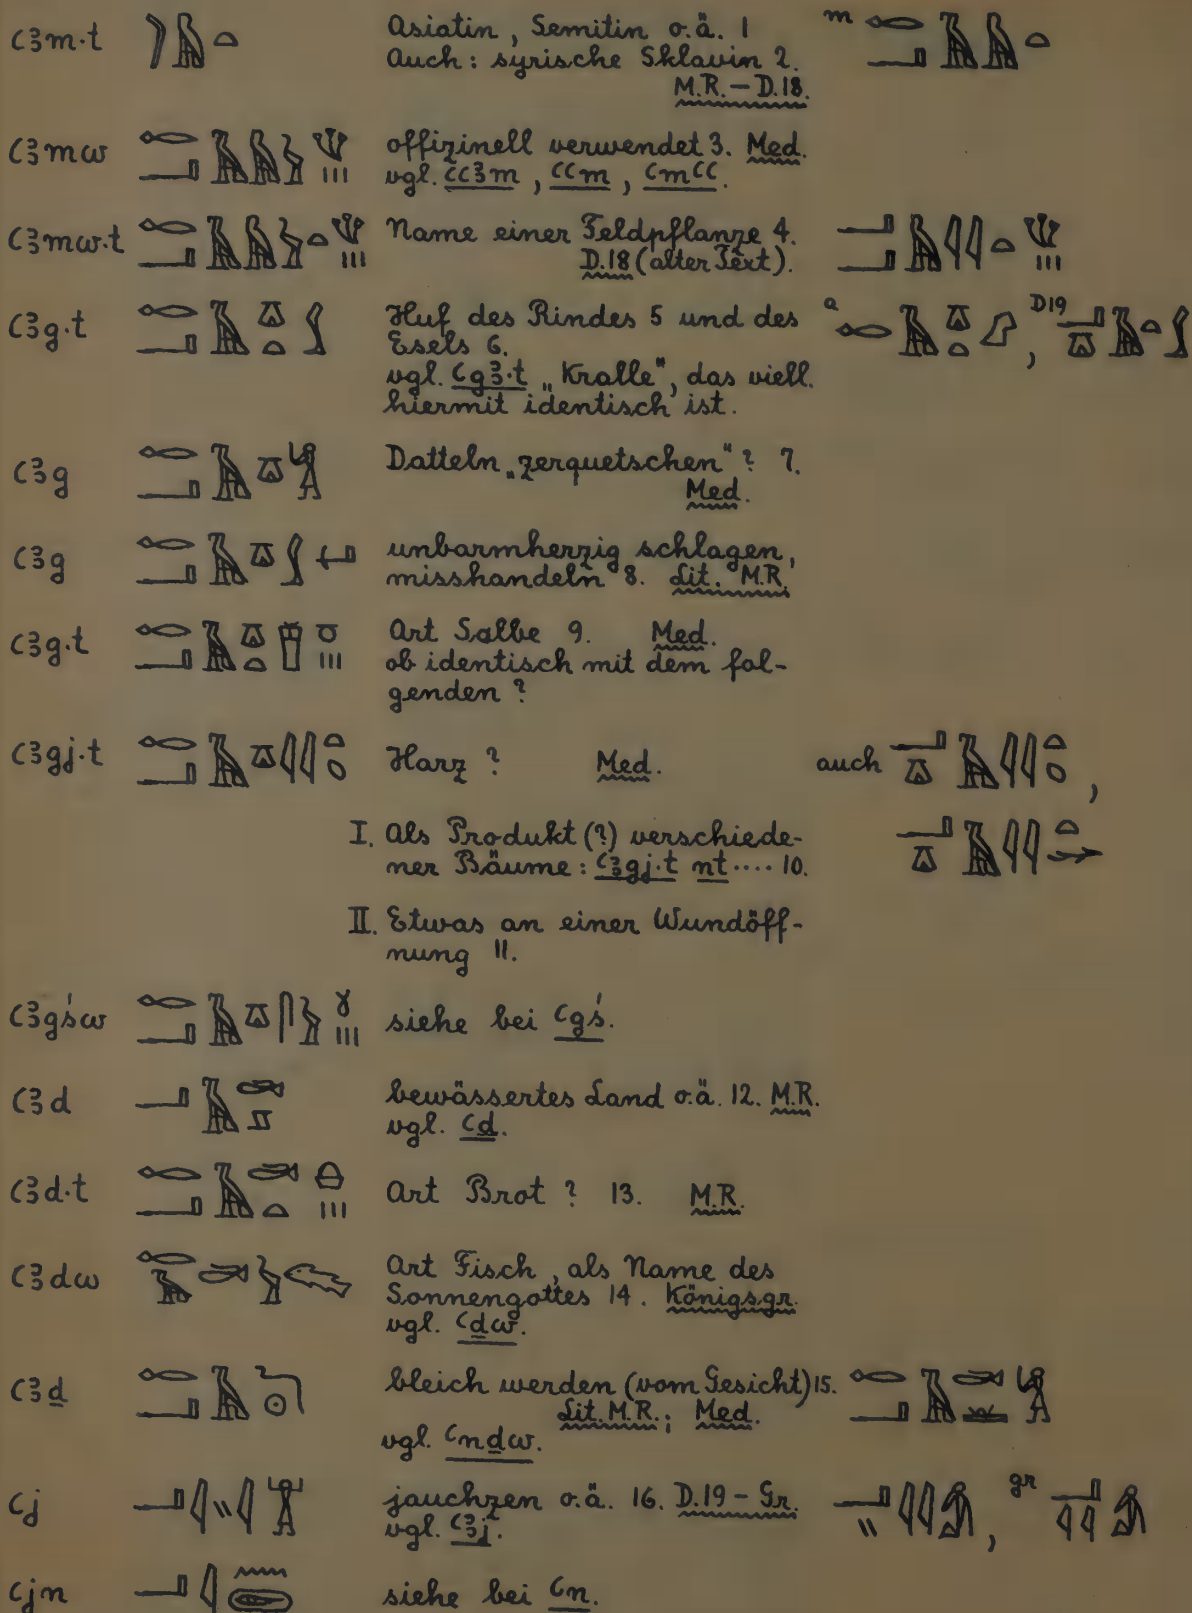 ꜥꜣm·t Asiatin, Semitin o.ä. 1 m
Auch: syrische Sklavin 2.
M.R. – D.18.
ꜥꜣmw offizinell verwendet 3. Med.
vgl. ꜥꜥꜣm, ꜥꜥm, ꜥmꜥꜥ.
ꜥꜣmw·t Name einer Feldpflanze 4.
D.18 (alter Text).
ꜥꜣg·t Huf des Rindes 5 und des a , D19
Esels 6.
vgl. ꜥgꜣ·t „Kralle“, das viell.
hiermit identisch ist.
ꜥꜣg Datteln „zerquetschen“? 7.
Med.
ꜥꜣg unbarmherzig schlagen,
misshandeln 8. Lit. M.R.
ꜥꜣg·t Art Salbe 9. Med.
ob identisch mit dem fol-
genden?
ꜥꜣgj·t Harz? Med. auch ,
I. Als Produkt (?) verschiede-
ner Bäume: ꜥꜣgj·t nt .... 10.
II. Etwas an einer Wundöff-
nung 11.
ꜥꜣgśw siehe bei ꜥgś.
ꜥꜣd bewässertes Land o.ä. 12. M.R.
vgl. ꜥd.
ꜥꜣd·t Art Brot? 13. M.R.
ꜥꜣdw Art Fisch, als Name des
Sonnengottes 14. Königsgr.
vgl. ꜥḏw.
ꜥꜣḏ bleich werden (vom Gesicht) 15.
Lit. M.R.; Med.
vgl. ꜥnḏw.
ꜥj jauchzen o.ä. 16. D.19 – Gr. , gr
vgl. ꜥꜣj.
ꜥjn siehe bei ꜥn.